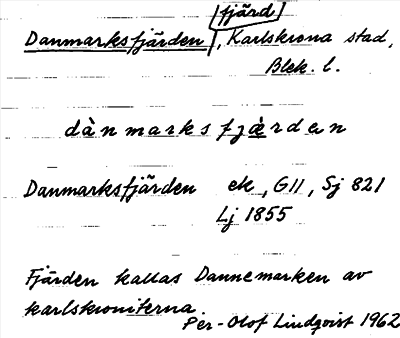 fjärd
Danmarksfjärden, Karlskrona stad,
Blek. l.
dànmarksfjæ̀rdan
Danmarksfjärden ek, G11, Sj 821
Lj 1855
Fjärden kallas Dannemarken av
karlskroniterna
Per-Olof Lindqvist 1962